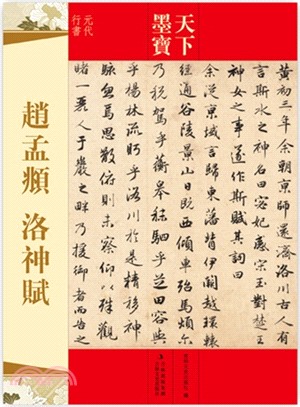 天下
墨寶
元代
行書
趙孟頫 洛神賦
黃初三年余朝京師還濟洛川古人有
言斯水之神名曰宓妃感宋玉對楚王
神女之事遂作斯賦其詞曰
余從京域言歸東藩背伊闕越轘轅
經通谷陵景山日既西傾車殆馬煩尔
乃稅駕乎蘅皋秣駟乎芝田容與
乎楊林流眄乎洛川於是精移神
駭忽焉思散俯則未察仰以殊觀
睹一麗人于巖之畔乃援御者而告之